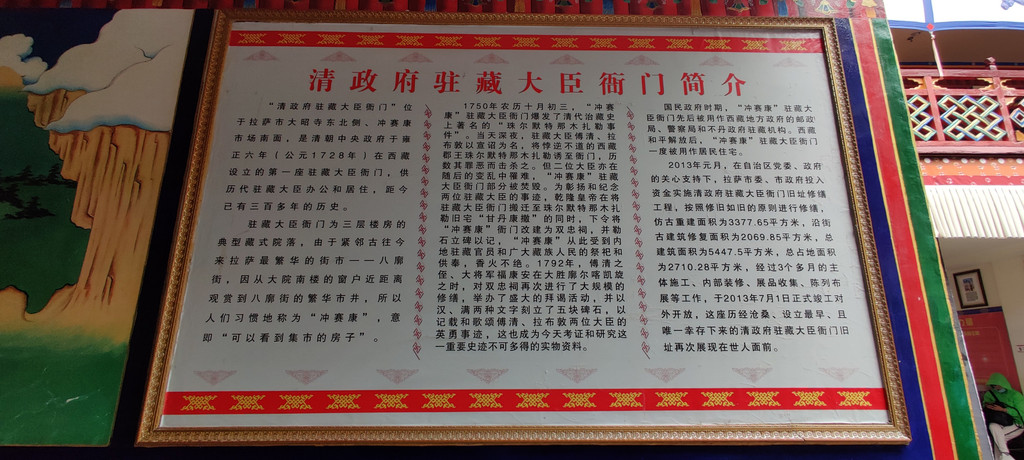 清政府驻藏大臣衙门简介
“清政府驻藏大臣衙门”位
于拉萨市大昭寺东北侧、冲赛康
市场南面,是清朝中央政府于雍
正六年(公元1728年)在西藏
设立的第一座驻藏大臣衙门,供
历代驻藏大臣办公和居住,距今
已有三百多年的历史。
驻藏大臣衙门为三层楼房的
典型藏式院落,由于紧邻古往今
来拉萨最繁华的街市——八廓
街,因从大院南楼的窗户近距离
观赏到八廓街的繁华市井,所以
人们习惯地称为“冲赛康”,意
即“可以看到集市的房子”。
1750年农历十月初三,“冲赛
康”驻藏大臣衙门爆发了清代治藏史
上著名的“珠尔默特那木扎勒事
件”。当天深夜,驻藏大臣傅清、拉
布敦以宣诏为名,将悖逆不道的西藏
郡王珠尔默特那木扎勒诱至衙门,历
数其罪恶而击杀之。但二位大臣亦在
随后的变乱中罹难,“冲赛康”驻藏
大臣衙门部分被焚毁。为彰扬和纪念
两位驻藏大臣的事迹,乾隆皇帝在将
驻藏大臣衙门搬迁至珠尔默特那木扎
勒旧宅“甘丹康撤”的同时,下令将
“冲赛康”衙门改建为双忠祠,并勒
石立碑以记,“冲赛康”从此受到内
地驻藏官员和广大藏族人民的祭祀和
供奉,香火不绝。1792年,傅清之
侄、大将军福康安在大胜廓尔喀凯旋
之时,对双忠祠再次进行了大规模的
修缮,举办了盛大的拜谒活动,并以
汉、满两种文字刻立了五块碑石,以
记载和歌颂傅清、拉布敦两位大臣的
英勇事迹,这也成为今天考证和研究这
一重要史迹不可多得的实物资料。
国民政府时期,“冲赛康”驻藏大
臣衙门先后被用作西藏地方政府的邮政
局、警察局和不丹政府驻藏机构。西藏
和平解放后,“冲赛康”驻藏大臣衙门
一度被用作居民住宅。
2013年元月,在自治区党委、政府
的关心支持下,拉萨市委、市政府投入
资金实施清政府驻藏大臣衙门旧址修缮
工程,按照修旧如旧的原则进行修缮,
仿古重建面积为3377.65平方米,沿街
古建筑修复面积为2069.85平方米,总
建筑面积为5447.5平方米,总占地面积
为2710.28平方米,经过3个多月的主
体施工、内部装修、展品收集、陈列布
展等工作,于2013年7月1日正式竣工对
外开放,这座历经沧桑、设立最早、且
唯一幸存下来的清政府驻藏大臣衙门旧
址再次展现在世人面前。